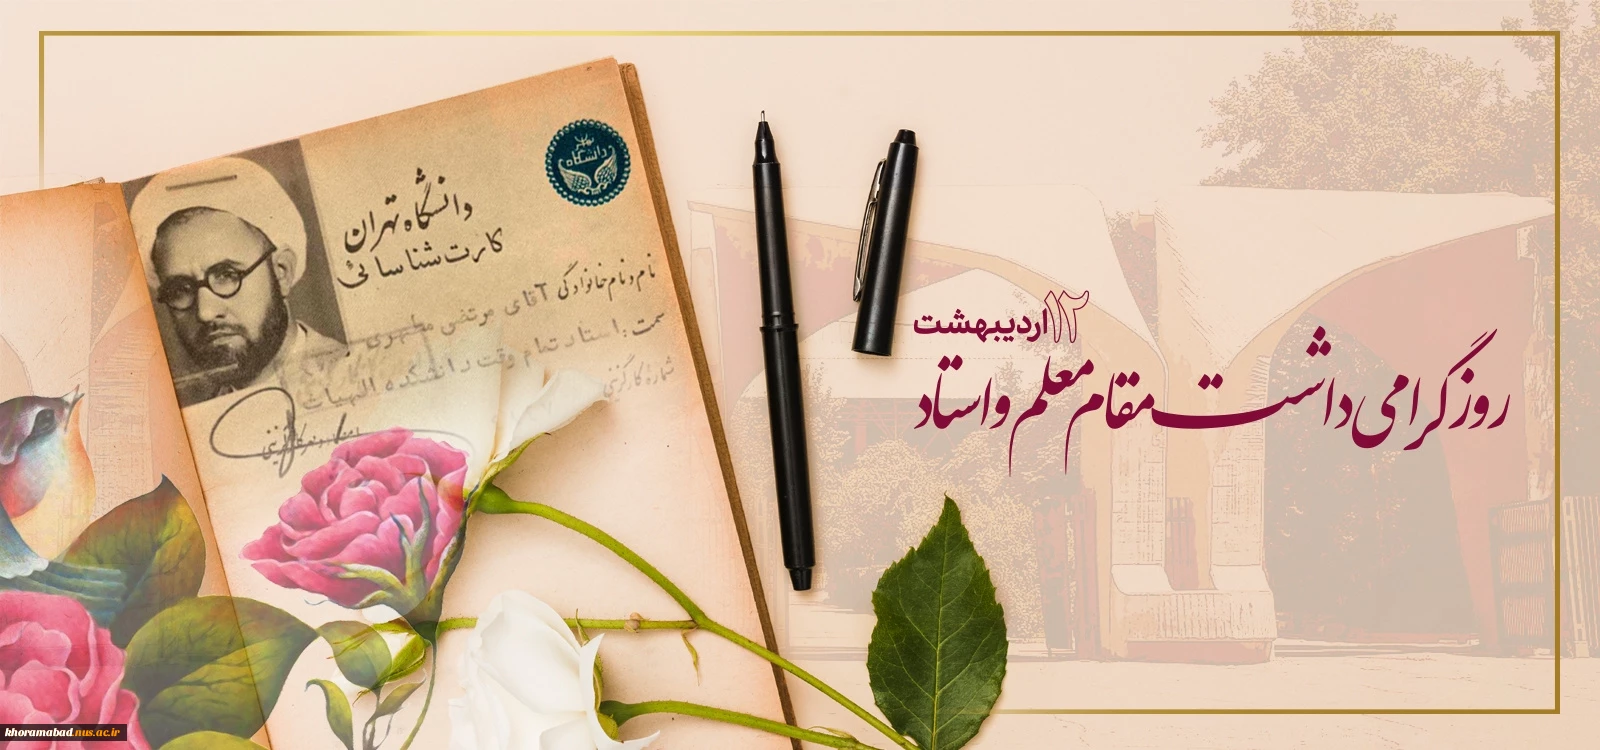 ۱۲ اردیبهشت
روز گرامی داشت مقام معلم و استاد
دانشگاه تهران
کارت شناسائی
نام و نام خانوادگی آقای مرتضی مطهری
سمت: استاد تمام وقت دانشکده الهیات
شماره کارگزینی
دانشگاه
تهران
khoramabad.nus.ac.ir